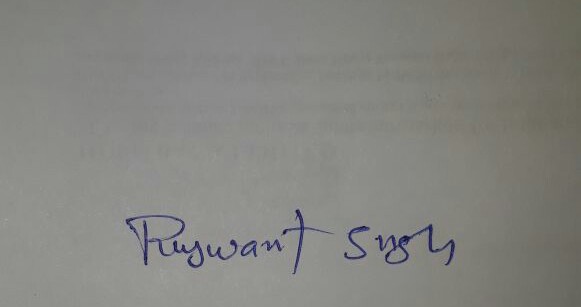 Rajwant Singh